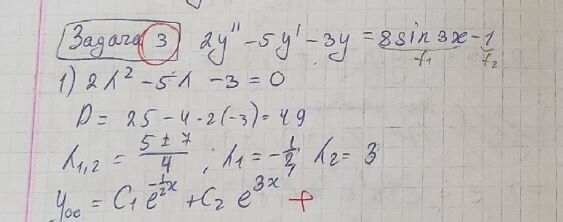 Задача 3 2y'' - 5y' - 3y = 8sin 3x - 1
f₁ f₂
1) 2λ² - 5λ - 3 = 0
D = 25 - 4 · 2(-3) = 49
λ₁,₂ = (5 ± 7)/4 ; λ₁ = -1/2, λ₂ = 3
yₒₒ = C₁ e^(-1/2 x) + C₂ e^(3x) +